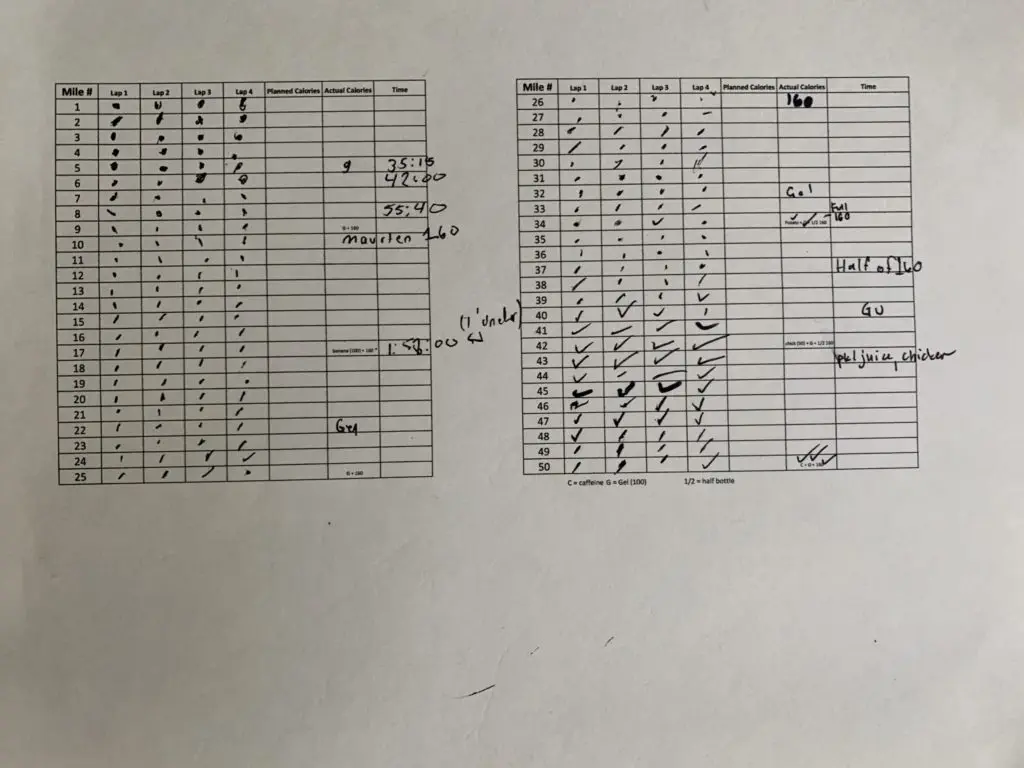 Mile # Lap 1 Lap 2 Lap 3 Lap 4 Planned Calories Actual Calories Time
1
2
3
4
5 g 35:15
6 42:00
7
8 55:40
9 G = 160
10 Maurten 160
11
12
13
14
15
16 (1' under)
17 banana (100) + 160 1:58:00
18
19
20
21
22 Gel
23
24
25 G + 160
Mile # Lap 1 Lap 2 Lap 3 Lap 4 Planned Calories Actual Calories Time
26 160
27
28
29
30
31
32 Gel
33 Full
34 1/2 160 160
35
36
37 Half of 160
38
39
40 GU
41
42 chick (50) + G + 1/2 160
43 juice, chicken
44
45
46
47
48
49
50 C + G + 160
C = caffeine G = Gel (100) 1/2 = half bottle